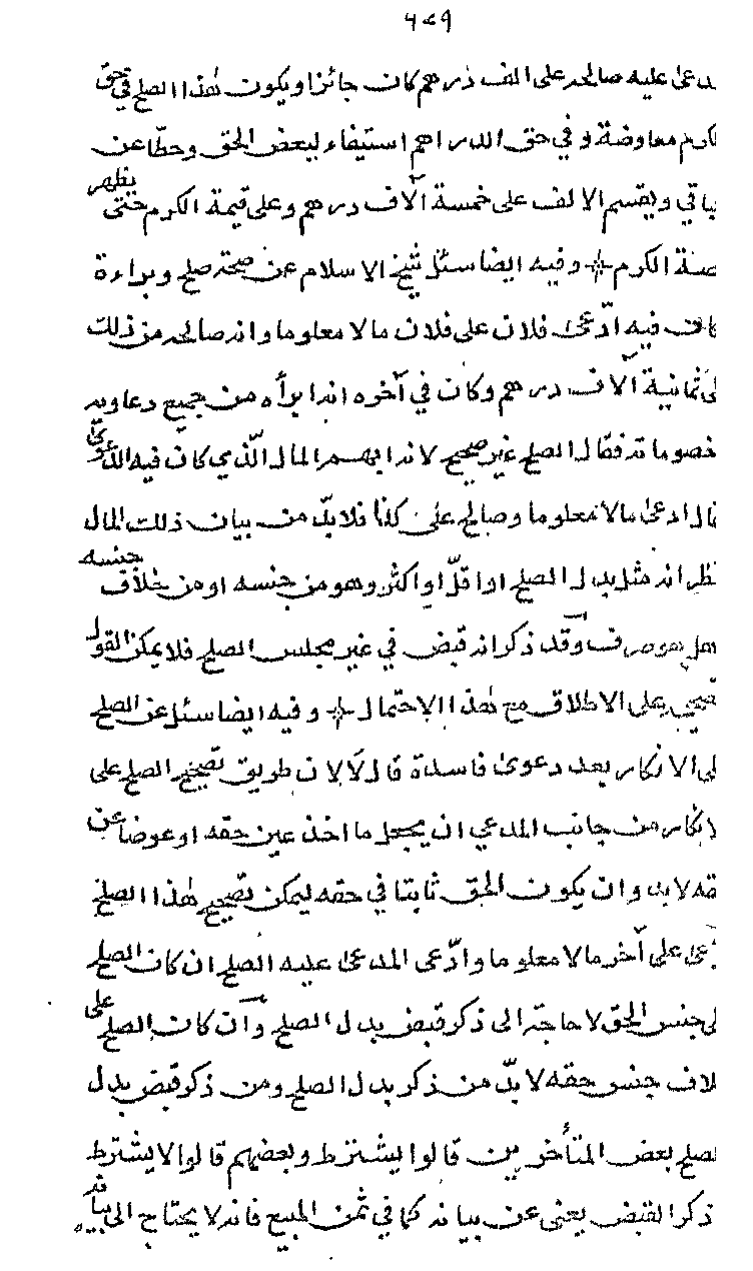 ۴۷۹
مدعى عليه صالحه على الف درهم كان جائزا ويكون هٰذا الصلح في حق
لكرم معاوضة و في حق الدراهم استيفاء لبعض الحق وحطّا عن
باقي ويقسم الالف على خمسة آلاف درهم وعلى قيمة الكرم حتى يظهر
صة الكرم وفيه ايضا سئل شيخ الاسلام عن صحة صلح وبراءة
كان فيه ادّعى فلان على فلان مالا معلوما وانه صالحه من ذلك
لى ثمانية آلاف درهم وكان في آخره انه ابرأه من جميع دعاويه
خصوماته فقال الصلح غير صحيح لانه ابهم المال الّذي كان فيه الدعوىٰ
قال ادعىٰ مالا معلوما وصالح على كذا فلابدّ من بيان ذلك المال
نظر انه مثل بدل الصلح او اقلّ او اكثر وهو من جنسه او من خلاف جنسه
هل هو صرف وقد ذكر انه قبض في غير مجلس الصلح فلا يمكن القول
تصحيحه على الاطلاق مع هٰذا الاحتمال وفيه ايضا سئل عن الصلح
لى الانكار بعد دعوىٰ فاسدة قال لا لان طريق تصحيح الصلح على
لانكار من جانب المدعي ان يجعل ما اخذ عين حقه او عوضا عن
قه لابد وان يكون الحق ثابتا في حقه ليمكن تصحيح هٰذا الصلح
دّعى على آخر مالا معلوما وادّعى المدعىٰ عليه الصلح ان كان الصلح
لى جنس الحق لا حاجة الى ذكر قبض بدل الصلح وان كان الصلح على
لاف جنس حقه لابدّ من ذكر بدل الصلح ومن ذكر قبض بدل
لصلح بعض المتأخرين قالوا يشترط وبعضهم قالوا لا يشترط
ذكر القبض يعنى عن بيانه كما في ثمن المبيع فانه لا يحتاج الى بيانه